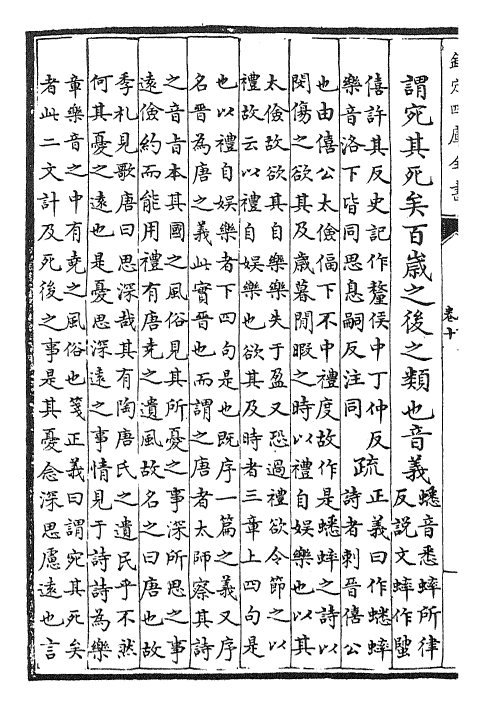 欽定四庫全書
卷十
謂宛其死矣百歲之後之類也音義
蟋音悉蟀所律
反說文蟀作
僖許其反史記作釐侯中丁仲反
樂音洛下皆同思息嗣反注同
疏
正義曰作蟋蟀
詩者刺晉僖公
也由僖公太儉偪下不中禮度故作是蟋蟀之詩以
閔傷之欲其及歲暮閒暇之時以禮自娛樂也以其
太儉故欲其自樂樂失于盈又恐過禮欲令節之以
禮故云以禮自娛樂也欲其及時者三章上四句是
也以禮自娛樂者下四句是也既序一篇之義又序
名晉為唐之義此實晉也而謂之唐者太師察其詩
之音旨本其國之風俗見其所憂之事深所思之事
遠儉約而能用禮有唐堯之遺風故名之曰唐也故
季札見歌唐曰思深哉其有陶唐氏之遺民乎不然
何其憂之遠也是憂思深遠之事情見于詩詩為樂
章樂音之中有堯之風俗也箋正義曰謂宛其死矣
者此二文計及死後之事是其憂念深思慮遠也言